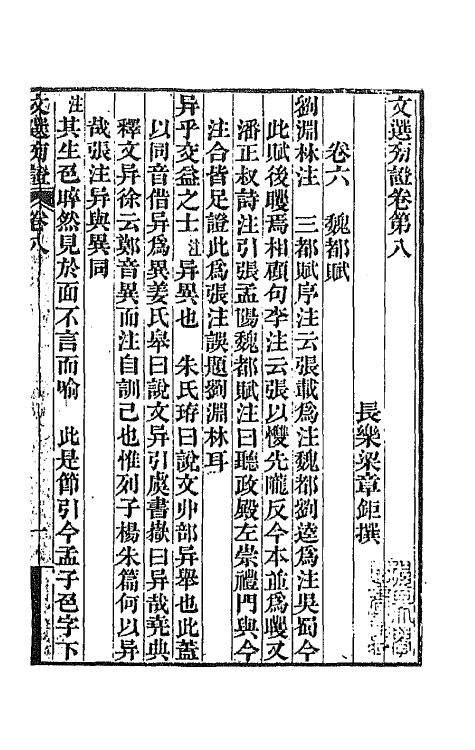 文選旁證卷第八
長樂梁章鉅撰
卷六 魏都賦
劉淵林注 三都賦序注云張載爲注魏都劉逵爲注吳蜀今
此賦後矎焉相顧句李注云張以㦜先隴反今本並爲矎又
潘正叔詩注引張孟陽魏都賦注曰聽政殿左崇禮門與今
注合皆足證此爲張注誤題劉淵林耳
异乎交益之士 注异異也 朱氏珔曰說文廾部异舉也此蓋
以同音借异爲異姜氏皋曰說文异引虞書嶽曰异哉堯典
釋文异徐云鄭音異而注自訓己也惟列子楊朱篇何以异
哉張注异與異同
注其生色睟然見於面不言而喻 此是節引今孟子色字下
文選旁證 卷八 一